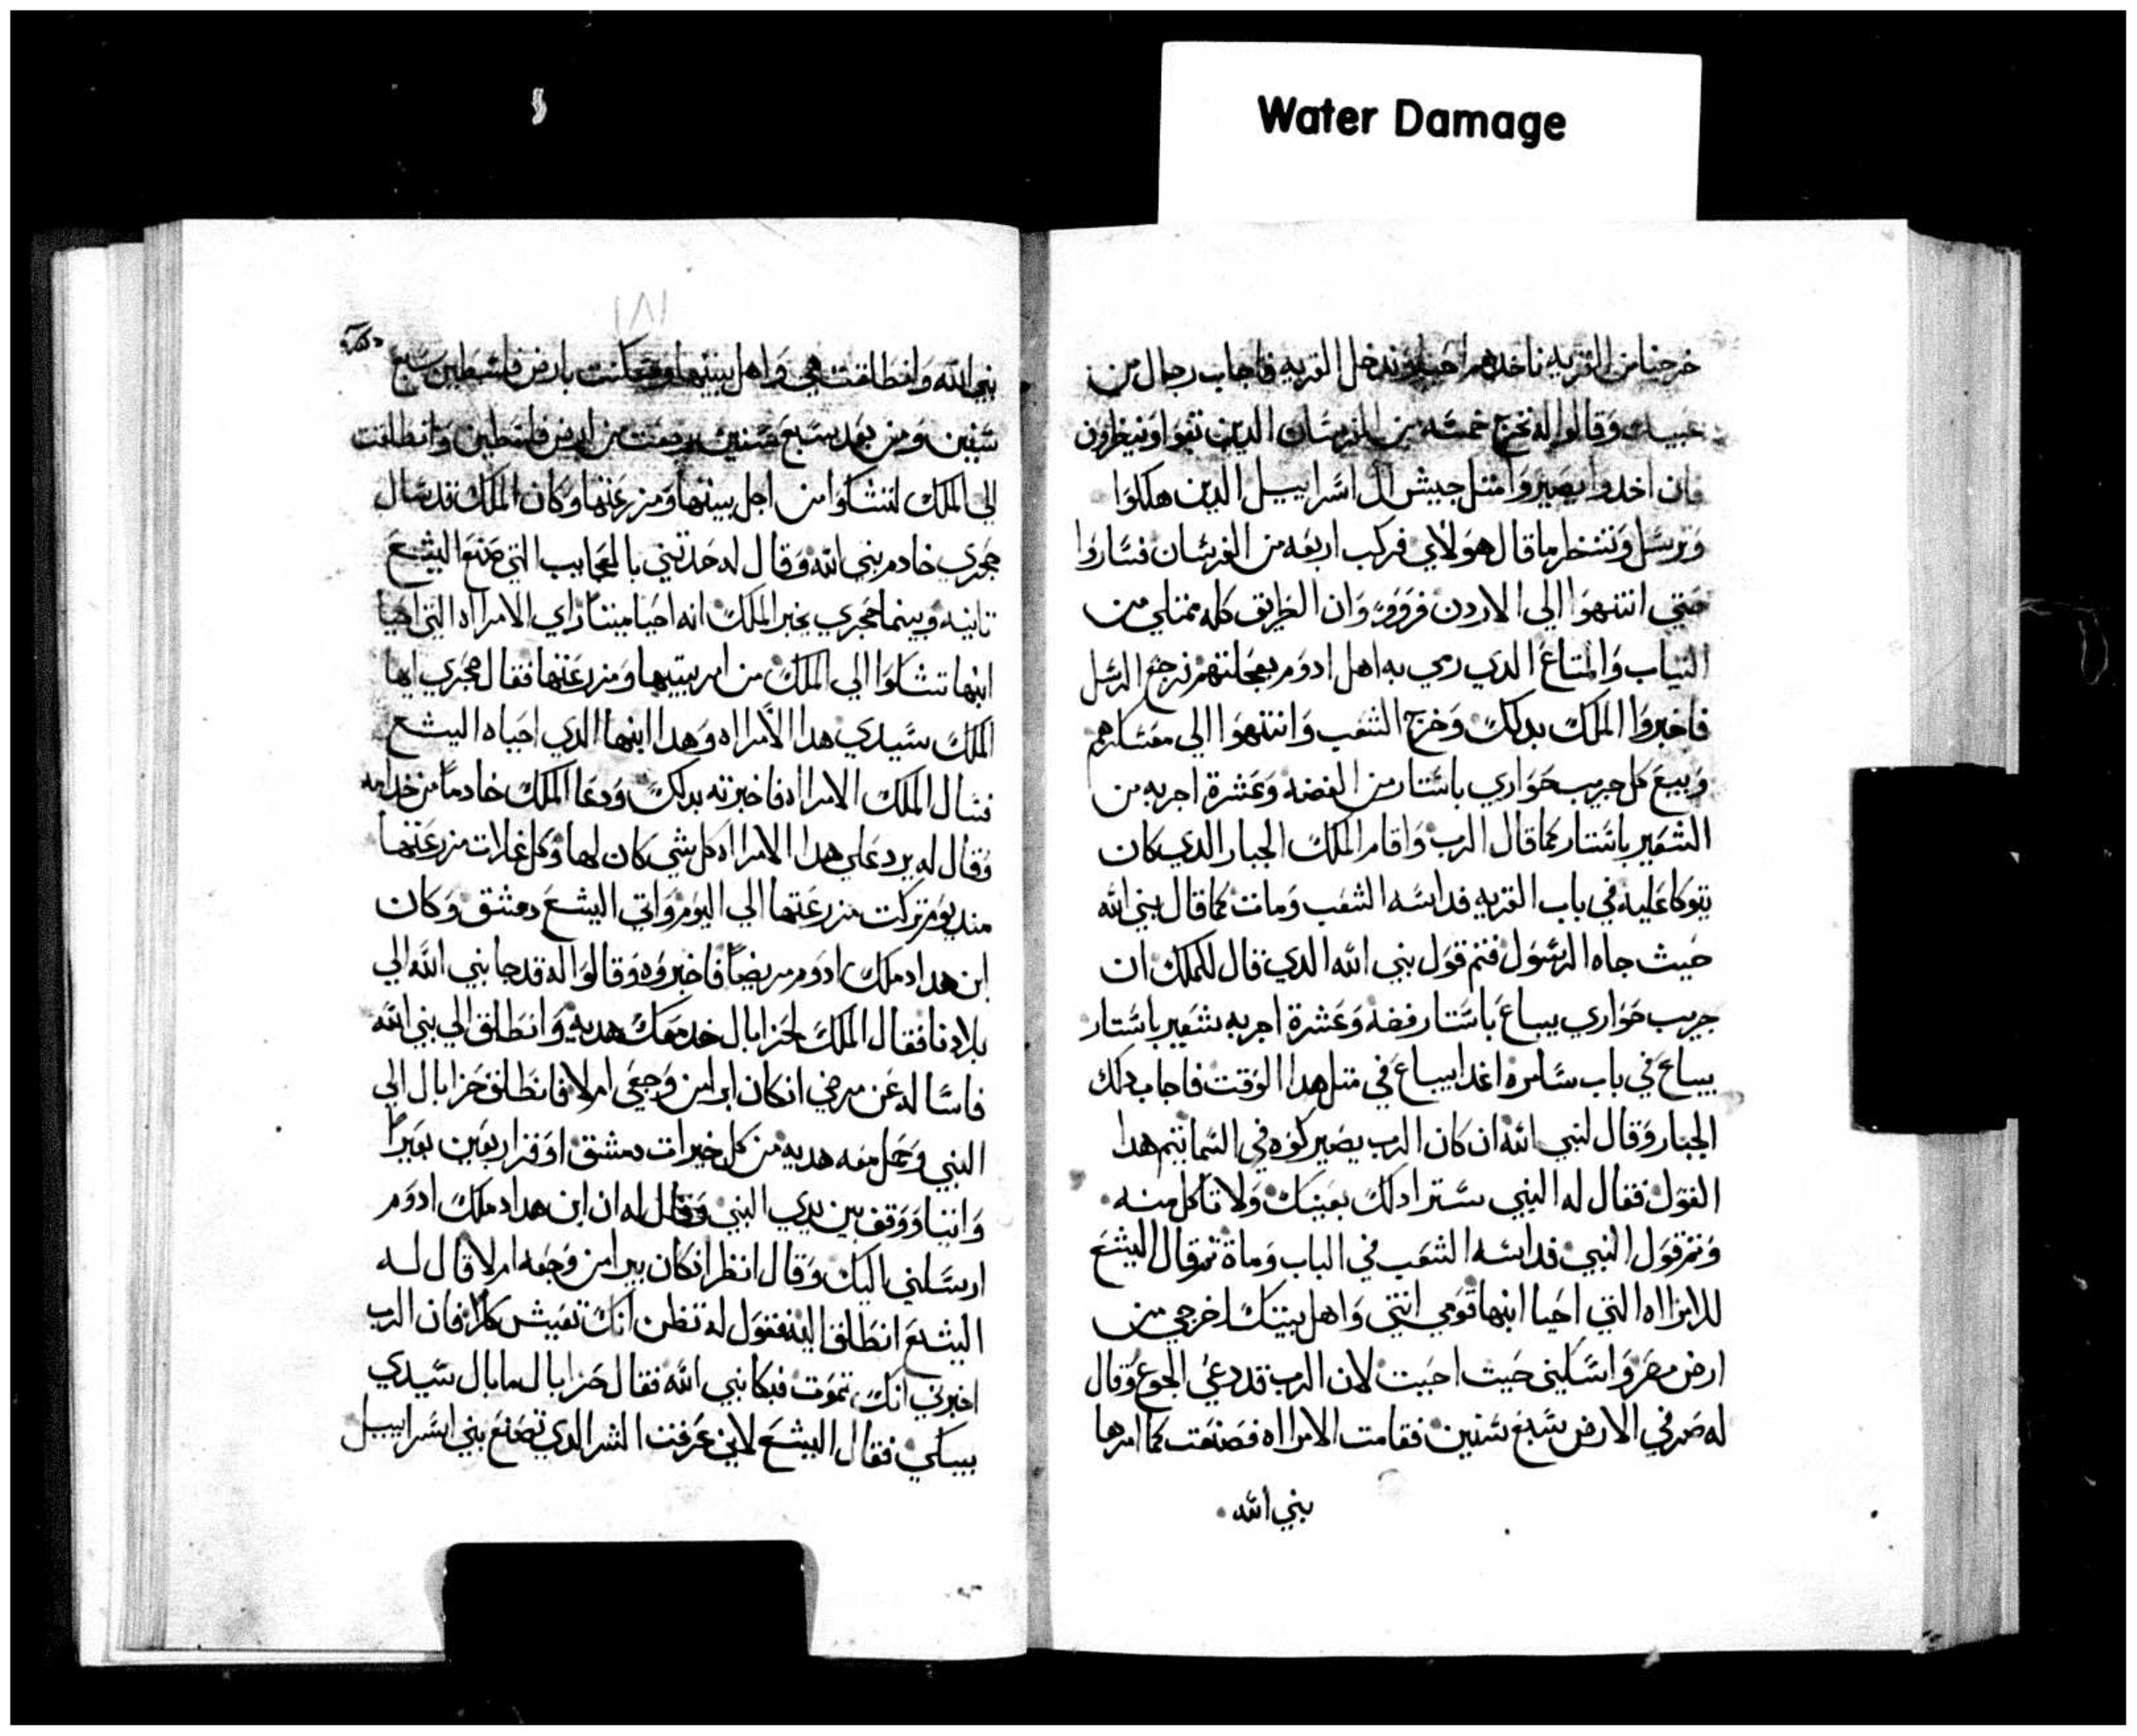 Water Damage
خرجنا من القريه ناخدهم احيا وندخل القريه فاجاب رجال من
عبيده وقالوا له نخرج خمسه من الفرسان الدين بقوا وينظرون
فان اخدوا يصيروا متل جيش ال اسراييل الدين هلكوا
ونرسل وننظر ما قال هولاي فركب اربعه من الفرسان فساروا
حتي انتهوا الي الاردن وان الطريق كله ممتلي من
التياب والمتاع الدي رمي به اهل ادوم بعجلتهم فرجع الرسل
فاخبروا الملك بدلك وخرج الشعب وانتهوا الي معسكرهم
وبيع كل جريب حواري باستار من الفضه وعشرة اجربه من
الشعير باستار كما قال الرب واقام الملك الجبار الدي كان
يتوكا عليه في باب القريه فداسه الشعب ومات كما قال نبي الله
حيث جاه الرسول فتم قول نبي الله الدي قال للملك ان
جريب حواري يباع باستار فضه وعشرة اجربه شعير باستار
يباع في باب سامره اغدا يباع في متل هدا الوقت فاجاب دلك
الجبار وقال لنبي الله ان كان الرب يصير كوه في السما يتم هدا
القول فقال له النبي ستر ادلك بعينك ولا تاكل منه
وتم قول النبي فداسه الشعب في الباب وماة تم قال اليشع
للامراه التي احيا ابنها قومي انتي واهل بيتك اخرجي من
ارض مصر واسكني حيث احببت لان الرب قد دعي الجوع وقال
له صر في الارض سبع سنين فقامت الامراه فصنعت كما امرها
نبي الله
١٨١
نبي الله وانطلقت هي واهل بيتها وسكنت بارض فلسطين سبع
سنين ومن بعد سبع سنين رجعت من ارض فلسطين وانطلقت
الي الملك لتشكوا من اجل بيتها ومزرعتها وكان الملك قد سال
حجري خادم نبي الله وقال له حدتني بالعجايب التي صنع اليشع
تانيه وبينما حجري يخبر الملك انه احيا ميتا راي الامراه التي احيا
ابنها تشكوا الي الملك من امر بيتها ومزرعتها فقال حجري ايها
الملك سيدي هدا الامراه وهدا ابنها الدي احياه اليشع
فسال الملك الامراه فاخبرته بدلك ودعا الملك خادما من خدامه
وقال له يرد علي هدا الامراه كل شي كان لها وكل غلات مزرعتها
مند يوم تركت مزرعتها الي اليوم واتي اليشع دمشق وكان
ابن هداد ملك ادوم مريضا فاخبروه وقالوا له قد جا نبي الله الي
بلادنا فقال الملك لحزابال خد معك هديه وانطلق الي نبي الله
فاساله عن مرضي ان كان ابرا من وجعي ام لا فانطلق حزابال الي
النبي وحمل معه هديه من كل خيرات دمشق اوقر اربعين بعيرا
واتيا ووقف بين يدي النبي وقال له ان ابن هداد ملك ادوم
ارسلني اليك وقال انظر ان كان يبرا من وجعه ام لا قال له
اليشع انطلق اليه فقول له تظن انك تعيش كلا فان الرب
اخبرني انك تموت فبكا نبي الله فقال حزابال ما بال سيدي
يبكي فقال اليشع لاني عرفت الشر الدي تصنع ببني اسراييل